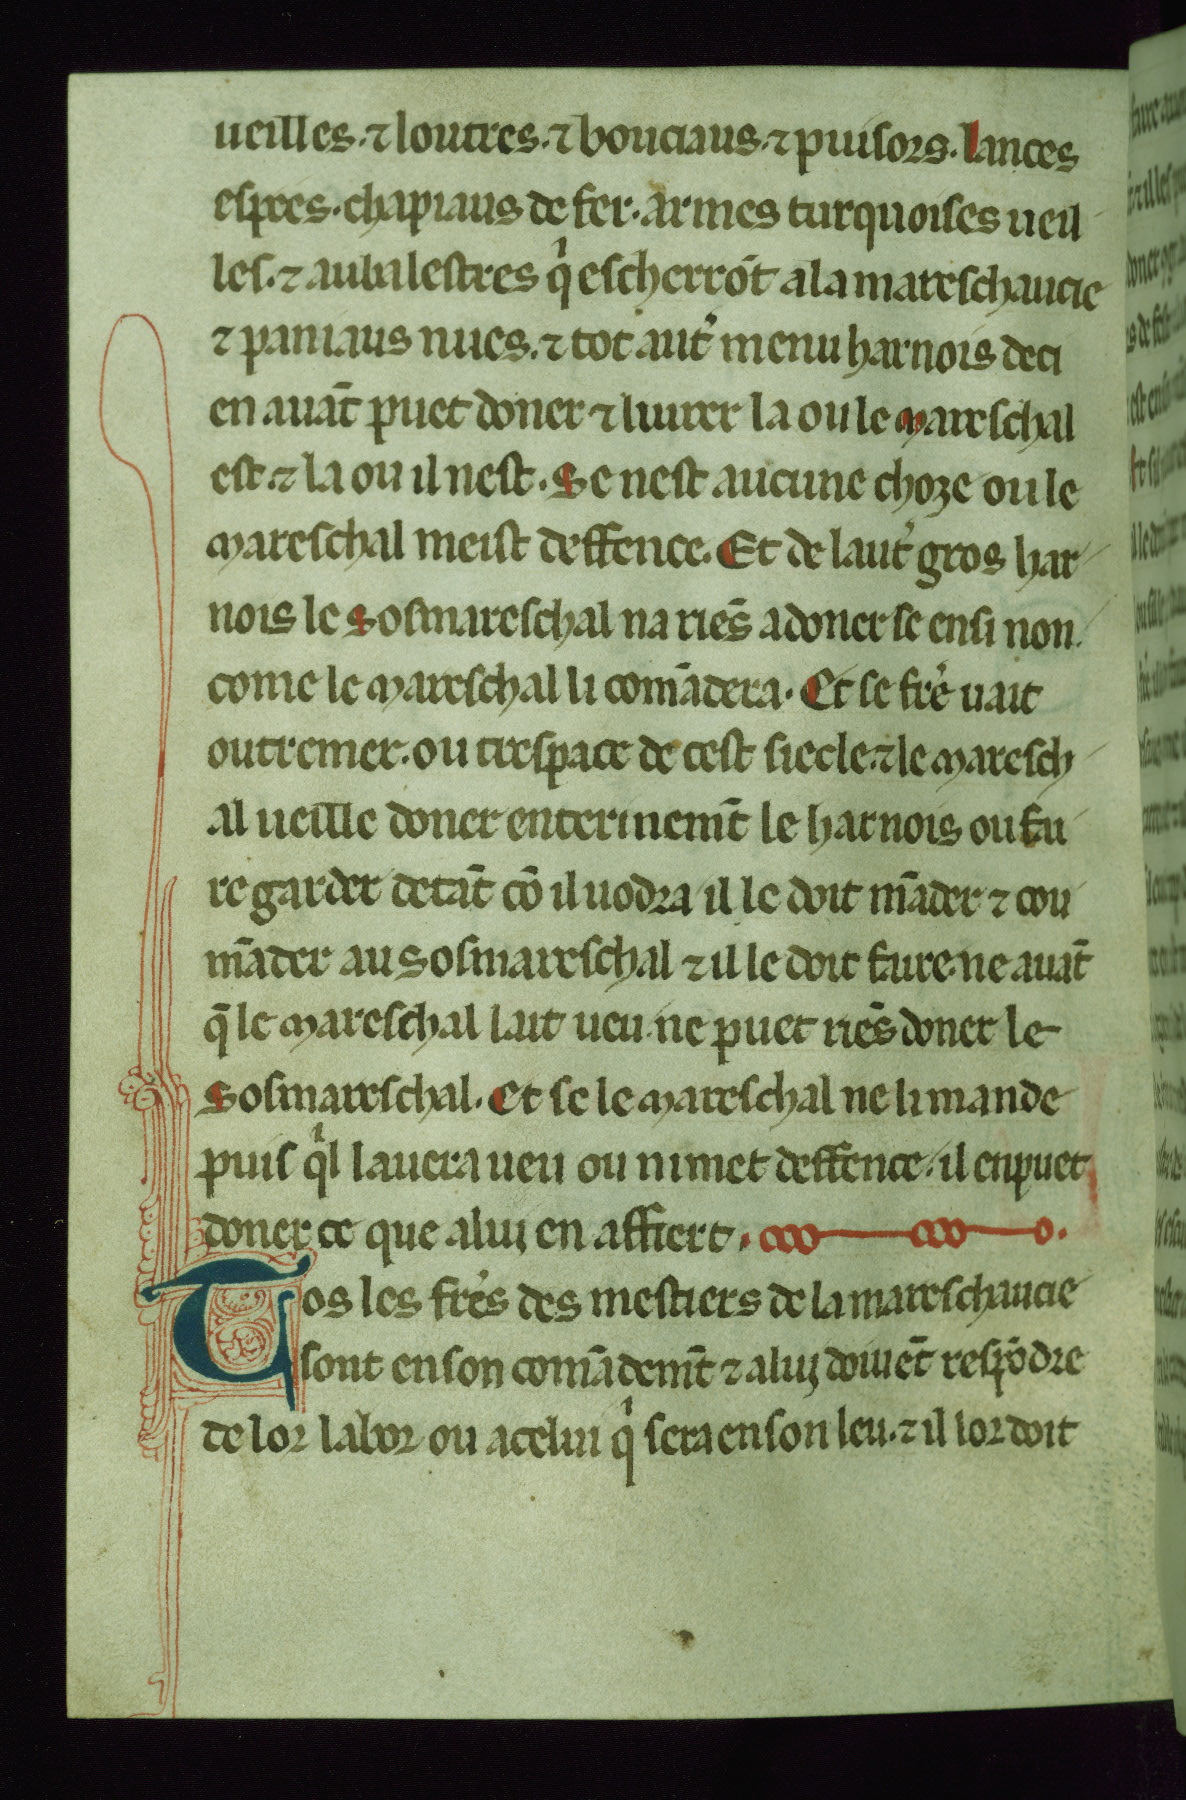 ueilles. ⁊ loutres. ⁊ bouciaus. ⁊ puisors. lances
espees. chapiaus de fer. armes turquoises ueil
les. ⁊ aubalestres qͥ escherrōt a la mareschaucie
⁊ paniaus nues. ⁊ tot aut̾ menu harnois deci
en auāt puet doner ⁊ liurer la ou le mareschal
est. ⁊ la ou il nest. Se nest aucune choze ou le
mareschal meist deffence. Et de laut̾ gros har
nois le sosmareschal na riēs a doner se ensi non
come le mareschal li comādera. Et se fr̾e uait
outremer. ou trespace de cest siecle. ⁊ le maresch
al ueille doner enterinemt̄ le harnois ou fai
re garder de tāt cō il uodra il le doit māder ⁊ cou
māder au sosmareschal ⁊ il le doit faire. ne auāt
q̄ le mareschal lait ueu. ne puet riēs doner le
sosmareschal. Et se le mareschal ne li mande
puis qͥl lauera ueu ou ni met deffence. il en puet
doner ce que a luj en affiert.
Tos les fr̾es des mestiers de la mareschaucie
sont en son comādemt̄ ⁊ a luj doiuēt respōdre
de lor labor ou a celui qͥ sera en son leu. ⁊ il lor doit